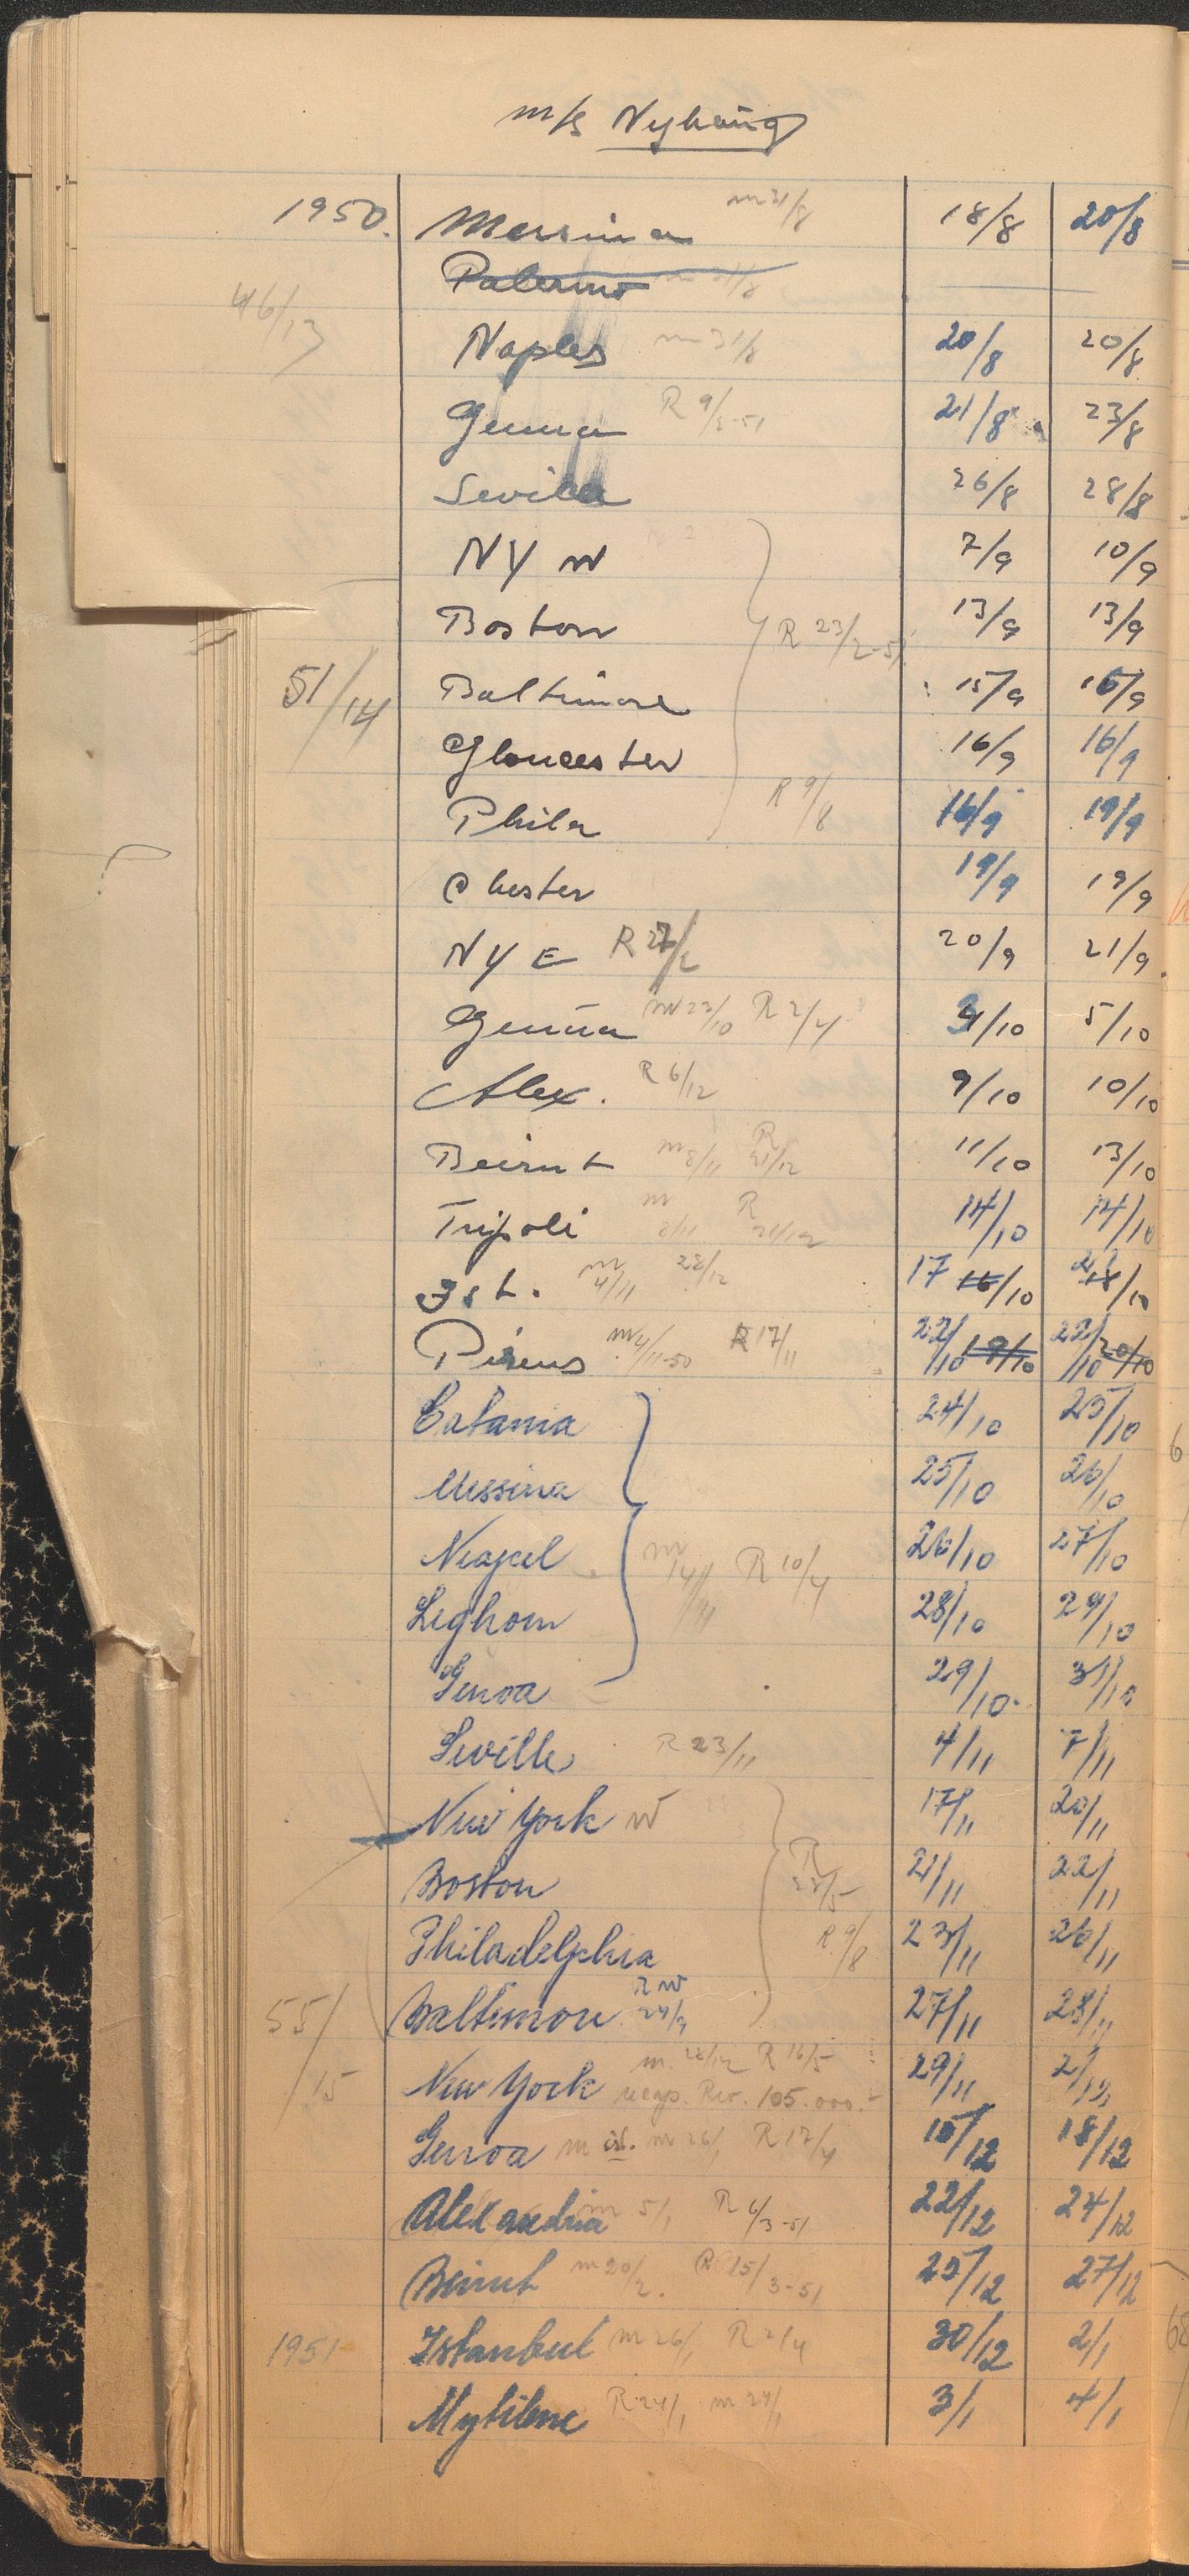 m/s Nyhaug
1950. Messina m 31/8 18/8 20/8
Palermo
46/13
Naples m 31/8 20/8 20/8
Genua R 9/3-51 21/8 23/8
Sevilla 26/8 28/8
NY W 7/9 10/9
Boston R 23/2-51 13/9 13/9
51/14 Baltimore 15/9 16/9
Gloucester 16/9 16/9
Phila R 9/8 16/9 19/9
Chester 19/9 19/9
NY E R 27/2 20/9 21/9
Genua m 23/10 R 2/4 4/10 5/10
Alex. R 6/12 9/10 10/10
Beirut m 8/11 R 21/12 11/10 13/10
Tripoli m 8/11 R 21/12 14/10 14/10
Ist. m 4/11 28/12 17 16/10 18/10
Pireus m 4/11-50 R 17/11 22/10 19/10 22/10 20/10
Catania 24/10 25/10
Messina 25/10 26/10
Neapel m 14/11 R 10/4 26/10 27/10
Leghorn 28/10 29/10
Genoa 29/10 31/10
Seville R 23/11 4/11 7/11
New York W 17/11 20/11
Boston R 21/11 22/11
Philadelphia R 9/8 23/11 26/11
55/15 Baltimore 27/11 28/11
New York m. 28/12 R 16/5 105.000.- 29/11 2/12
Genoa m m 26/1 R 17/4 15/12 18/12
Alexandria m 5/1 R 6/3-51 22/12 24/12
Beirut m 20/2. R 15/3-51 25/12 27/12
1951 Istanbul m 26/1 R 2/4 30/12 2/1
Mytilene R 24/1 m 24/1 3/1 4/1